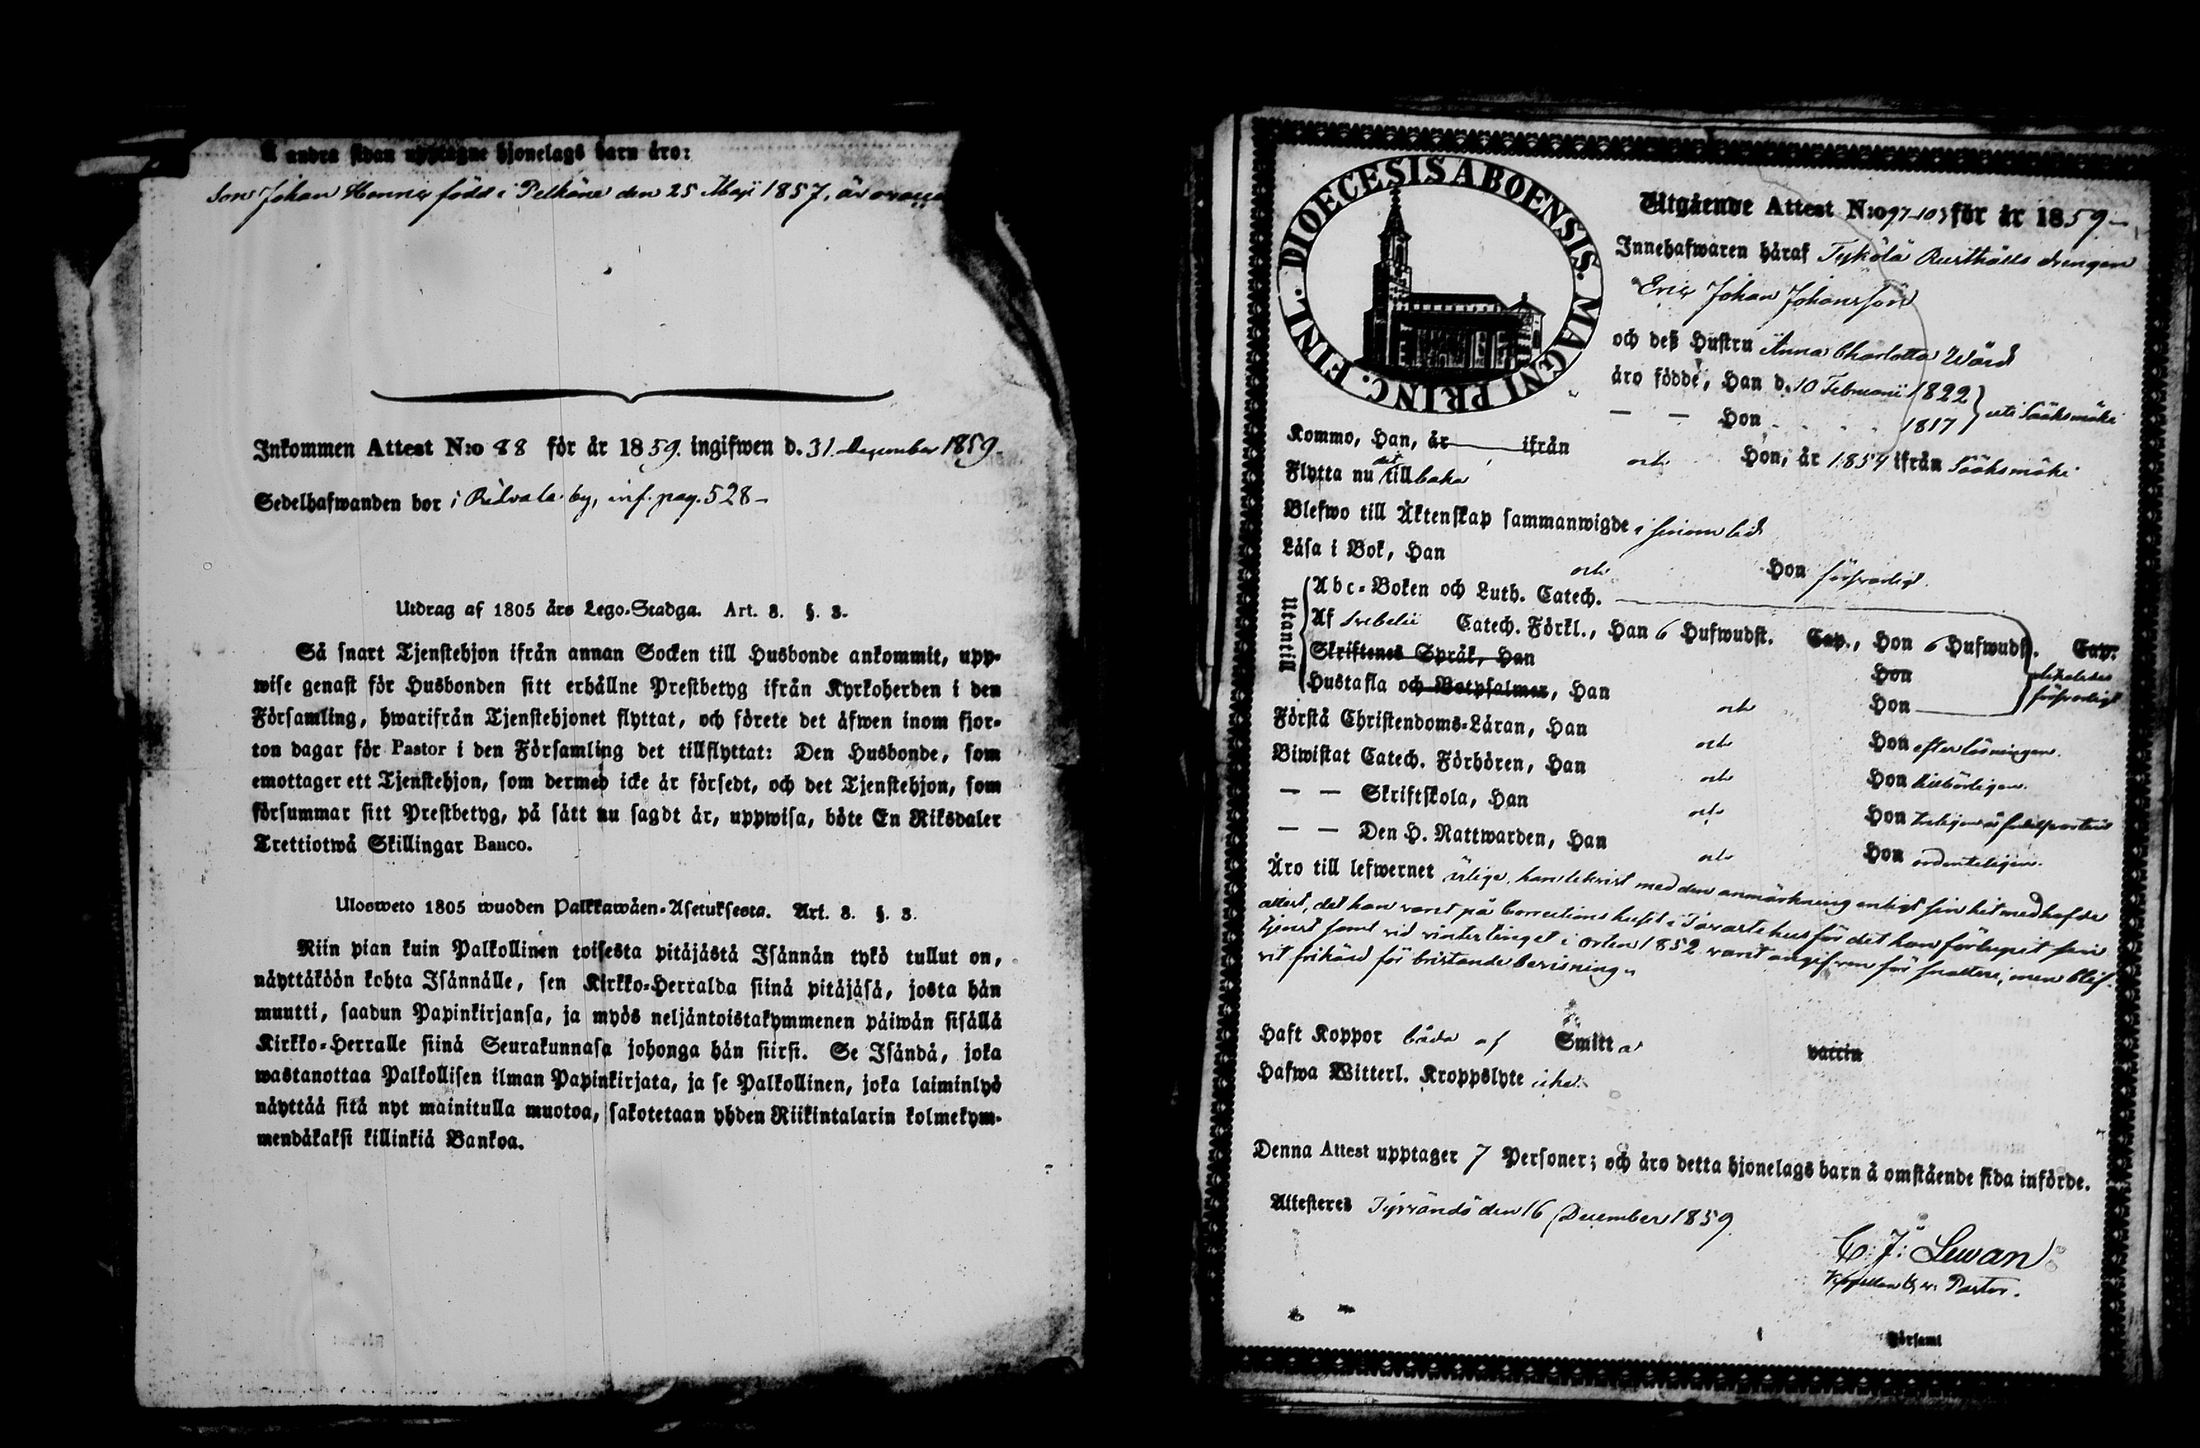 Å andra sidan upptagne hjonelags barn äro:
Son Johan Henric född i Pelkäne den 25 Maji 1857, är
Inkommen Attest N:o 88 för år 1859. ingifwen d. 31 December 1859.
Sedelhafwanden bor i Ridvala by, inf. pag. 528 –
Utdrag af 1805 års Lego-Stadga. Art. 3. §. 3.
Så snart Tjenstehjon ifrån annan Socken till Husbonde ankommit, upp-
wise genast för Husbonden sitt erhållne Prestbetyg ifrån Kyrkoherden i den
Församling, hwarifrån Tjenstehjonet flyttat, och förete det äfwen inom fjor-
ton dagar för Pastor i den Församling det tillflyttat: Den Husbonde, som
emottager ett Tjenstehjon, som dermed icke är försedt, och det Tjenstehjon, som
försummar sitt Prestbetyg, på sätt nu sagdt är, uppwisa, böte En Riksdaler
Trettiotwå Skillingar Banco.
Ulosweto 1805 wuoden Palkkawäen-Asetuksesta. Art. 3. §. 3.
Niin pian kuin Palkollinen toisesta pitäjästä Isännän tykö tullut on,
näyttäköön kohta Isännälle, sen Kirkko-Herralda siinä pitäjäsä, josta hän
muutti, saadun Papinkirjansa, ja myös neljäntoistakymmenen päiwän sisällä
Kirkko-Herralle siinä Seurakunnasa johonga hän siirsi. Se Isändä, joka
wastanottaa Palkollisen ilman Papinkirjata, ja se Palkollinen, joka laiminlyö
näyttää sitä nyt mainitulla muotoa, sakotetaan yhden Riikintalarin kolmekym-
mendäkaksi killinkiä Bankoa.
DIOECESIS ABOENSIS. MAGNI PRINC. FINL.
Utgående Attest N:o 97–103 för år 1859 –
Innehafwaren häraf Tykölä Rusthålls drengen
Eric Johan Johansson
och deß Hustru Anna Charlotta Wärd
äro födde, Han d. 10 Februarii 1822 } uti Sääksmäki
— — Hon 1817
Kommo, Han, är ifrån och Hon, år 1854 ifrån Sääksmäki
Flytta nu dit tillbaka
Blefwo till Äktenskap sammanwigde i sinom tid
Läsa i Bok, Han och Hon försvarligt
Utantill
Abc-Boken och Luth. Catech.
Af Svebelii Catech. Förkl., Han 6 Hufwudst. Cap., Hon 6 Hufwudst. Cap.
Skriftenes Språk, Han Hon likaledes
Hustafla och Botpsalmer, Han och Hon försvarligt
Förstå Christendoms-Läran, Han och Hon efter läsningen.
Biwistat Catech. Förhören, Han och Hon tillbörligen.
— — Skriftskola, Han och Hon
— — Den H. Nattwarden, Han och Hon ordenteligen.
Äro till lefwernet ärlige, med den anmärkning enligt sin hitmedhafde
attest, det han varit på Corrections huset i Tavastehus för det han förlupit sin
tjenst samt vid vintertinget i orten 1852 varit angifven för snatteri, men blef-
vit frikänd för bristande bevisning.
Haft Koppor båda af Smitta vaccin
Hafwa Witterl. Kroppslyte icke.
Denna Attest upptager 7 Personer; och äro detta hjonelags barn å omstående sida införde.
Attesteras Tyrvändö den 16 December 1859.
C. J. Lewan
Kapellan &, v. Pastor.
Församl